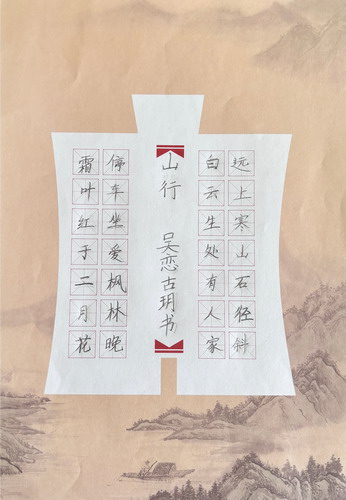 远上寒山石径斜
白云生处有人家
山行 吴恋古玥书
停车坐爱枫林晚
霜叶红于二月花